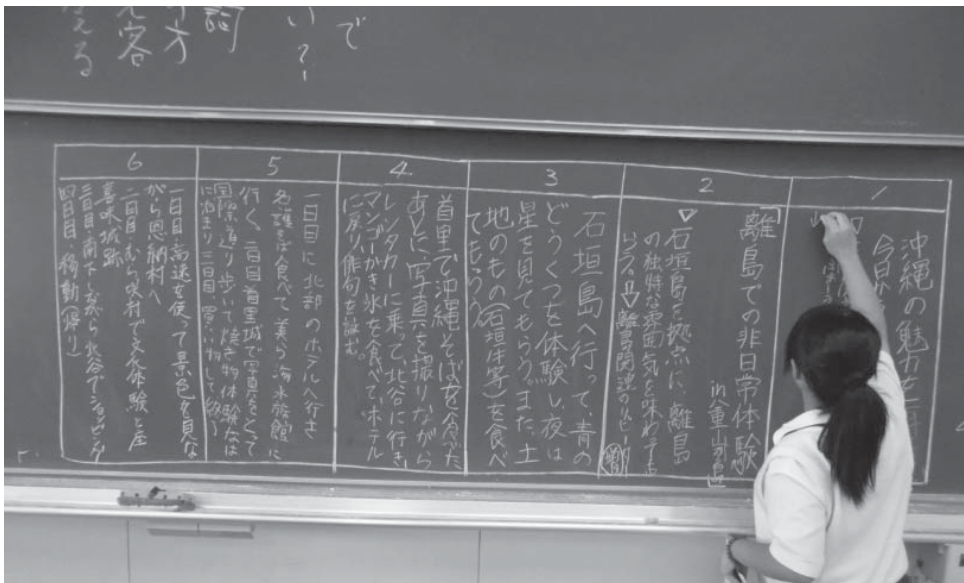 で
い?
詞
方
客
える
1
沖縄の魅力を
今帰
2
「離島での非日常体験
in八重山
▽石垣島を拠点に、離島
の独特な雰囲気を味わっても
らう。⇨離島関連のリピーター
3
石垣島へ行って、青の
どうくつを体験し、夜は
星を見てもらう。また、土
地のもの(石垣牛等)を食べ
てもらう。
4
首里で沖縄そばを食べた
あとに、写真を撮りながら
レンタカーに乗って、北谷に行き、
マンゴーかき氷を食べて、ホテル
に戻り、俳句を詠む。
5
一日目に北部のホテルへ行き
名護そば食べて、美ら海水族館に
行く、二日目首里城で写真をとって
国際通り歩いて焼き物体験
に泊まり三日目、買い物して帰る
6
一日目、高速を使って景色を見な
がら恩納村へ
二日目、むら咲村で体験と座
喜味城跡
三日目、南下しながら北谷でショッピング
四日目、移動(帰り)